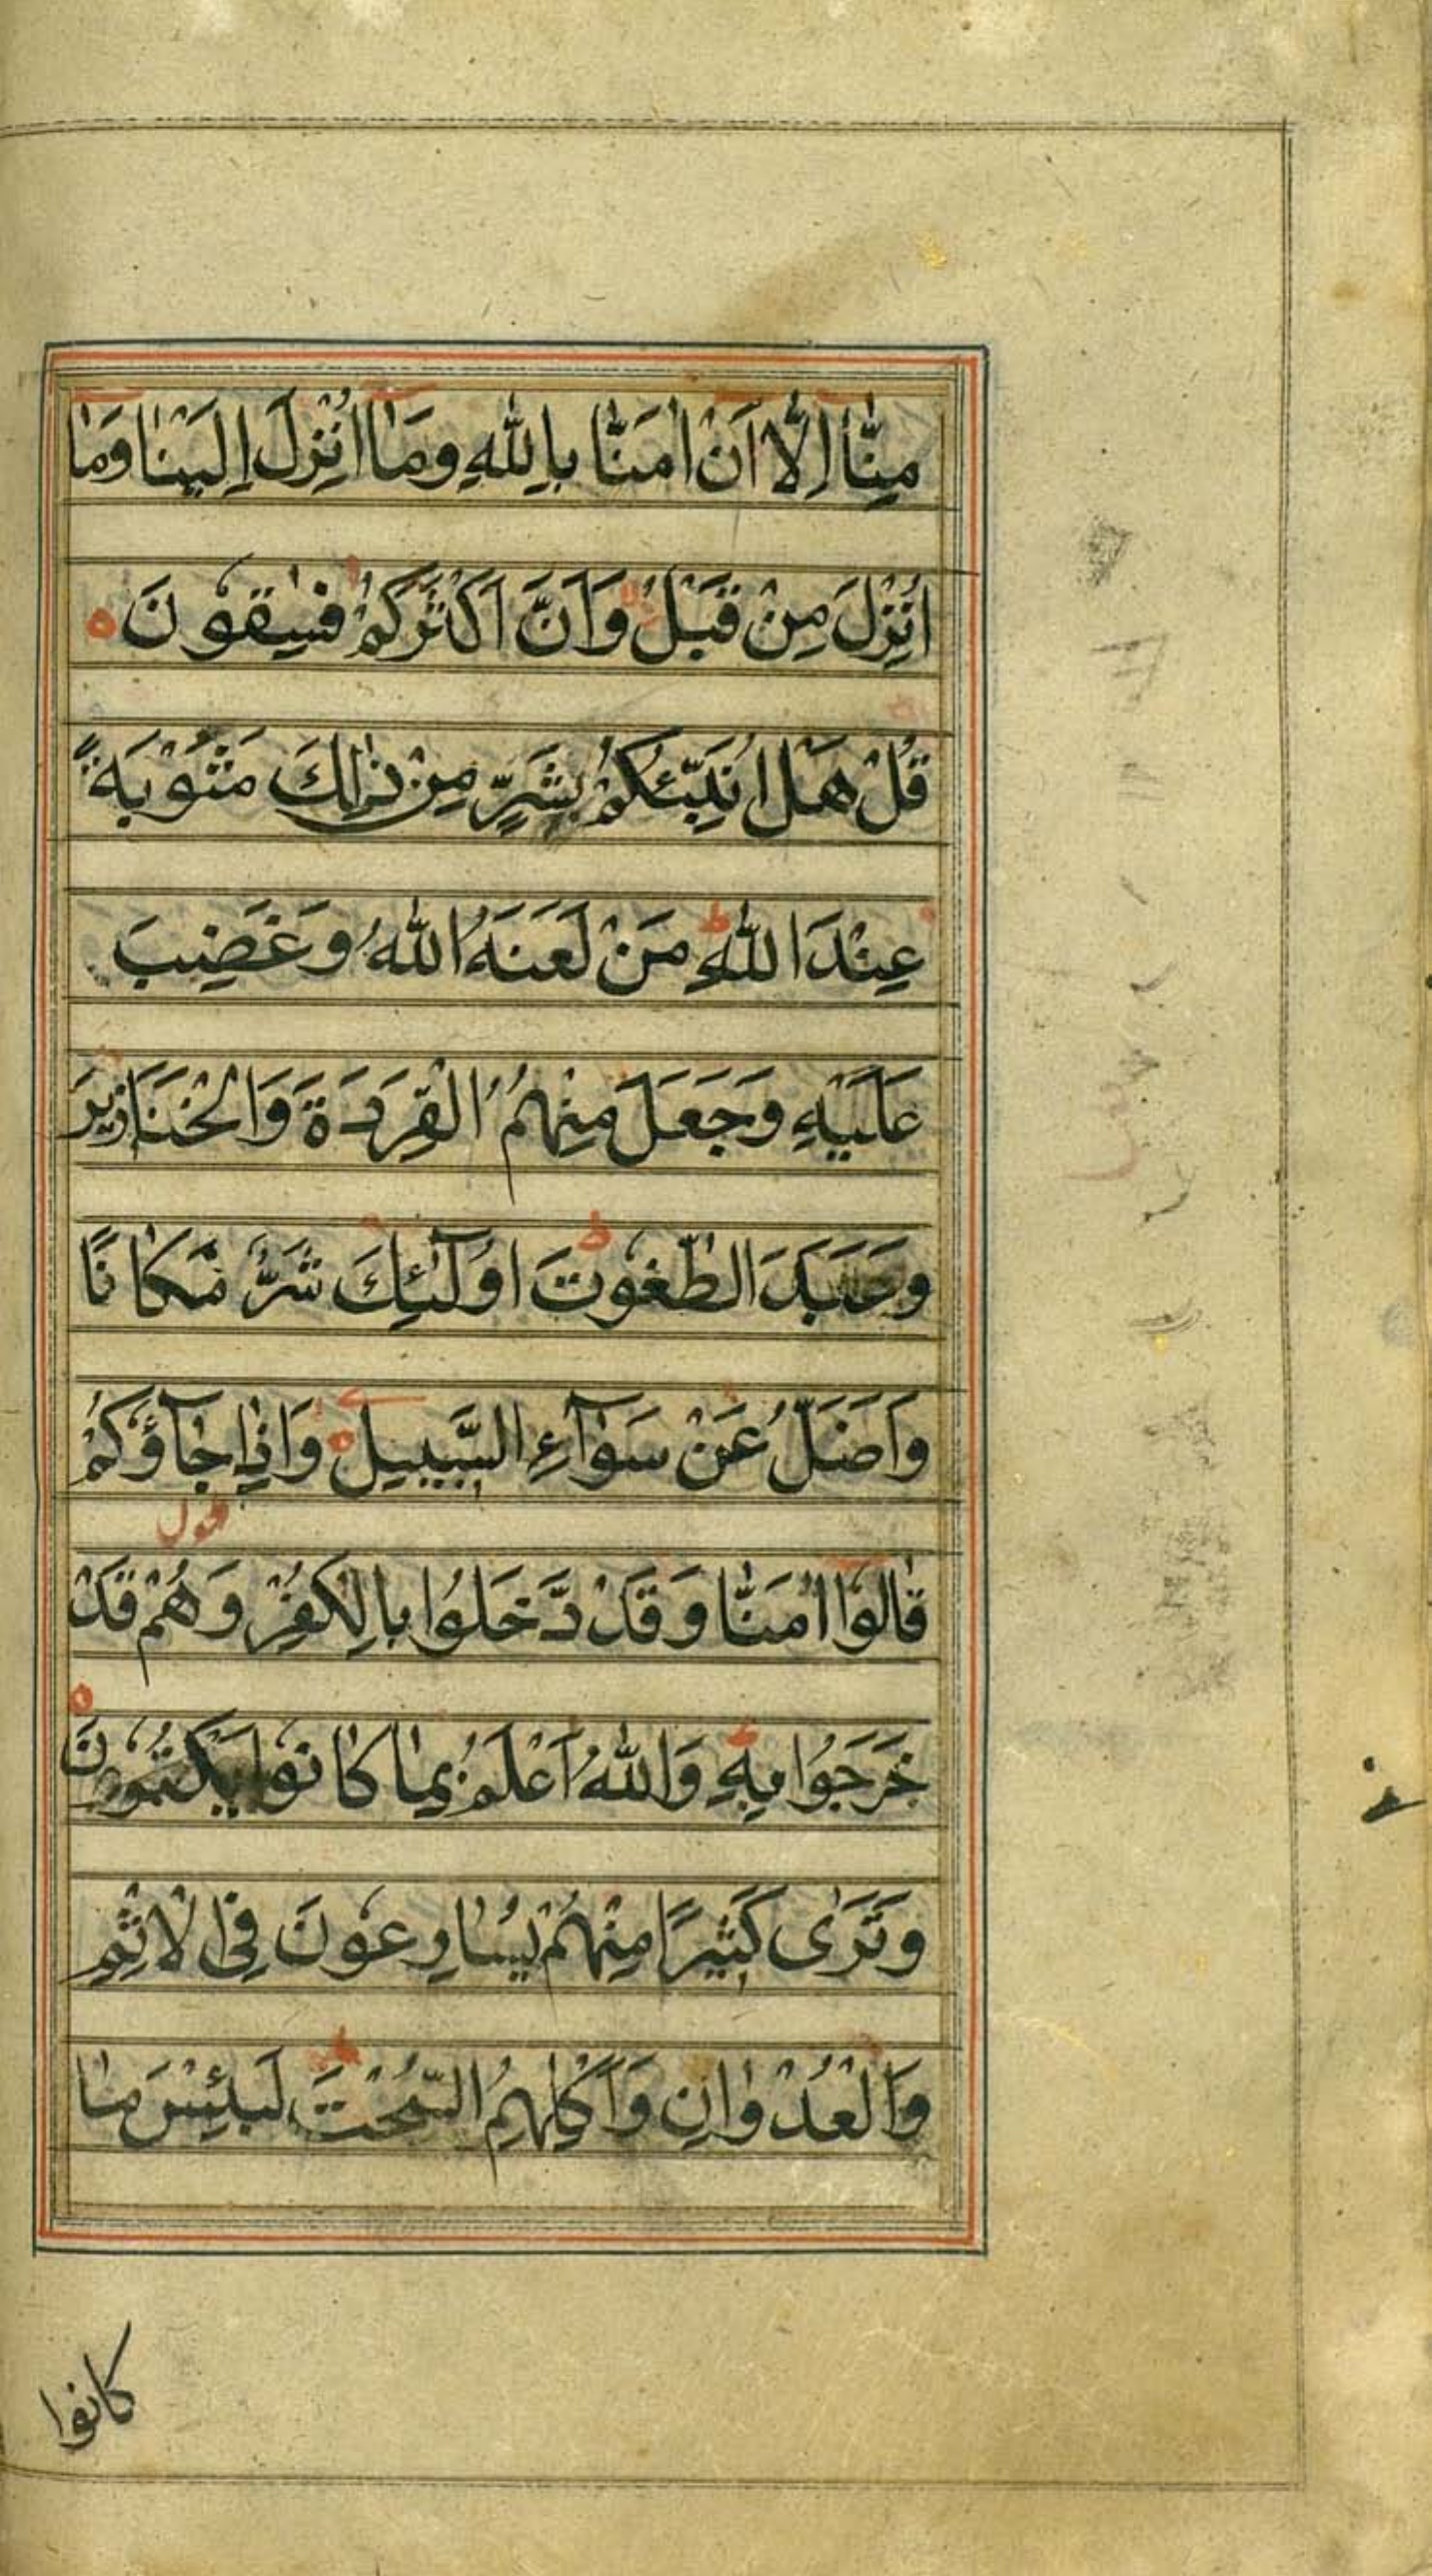 مِنَّا اِلَّا اَنْ اٰمَنَّا بِاللّٰهِ وَمَا اُنْزِلَ اِلَيْنَا وَمَا
اُنْزِلَ مِنْ قَبْلُ وَاَنَّ اَكْثَرَكُمْ فٰسِقُوْنَ
قُلْ هَلْ اُنَبِّئُكُمْ بِشَرٍّ مِنْ ذٰلِكَ مَثُوْبَةً
عِنْدَ اللّٰهِ ط مَنْ لَعَنَهُ اللّٰهُ وَغَضِبَ
عَلَيْهِ وَجَعَلَ مِنْهُمُ الْقِرَدَةَ وَالْخَنَازِيْرَ
وَعَبَدَ الطّٰغُوْتَ ط اُولٰٓئِكَ شَرٌّ مَّكَانًا
وَاَضَلُّ عَنْ سَوَآءِ السَّبِيْلِ وَاِذَا جَآؤُكُمْ
قَالُوْا اٰمَنَّا وَقَدْ دَّخَلُوْا بِالْكُفْرِ وَهُمْ قَدْ
خَرَجُوْا بِهٖ وَاللّٰهُ اَعْلَمُ بِمَا كَانُوْا يَكْتُمُوْنَ
وَتَرٰى كَثِيْرًا مِنْهُمْ يُسَارِعُوْنَ فِى الْاِثْمِ
وَالْعُدْوَانِ وَاَكْلِهِمُ السُّحْتَ ط لَبِئْسَ مَا
كانوا